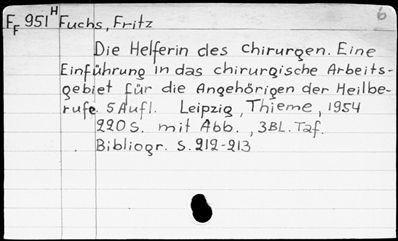 6
F_F 951 H Fuchs, Fritz
Die Helferin des Chirurgen. Eine
Einführung in das chirurgische Arbeits-
gebiet für die Angehörigen der Heilbe-
rufe. 5 Aufl. Leipzig, Thieme, 1954
220 S. mit Abb., 3 BL. Taf.
Bibliogr. S. 212-213